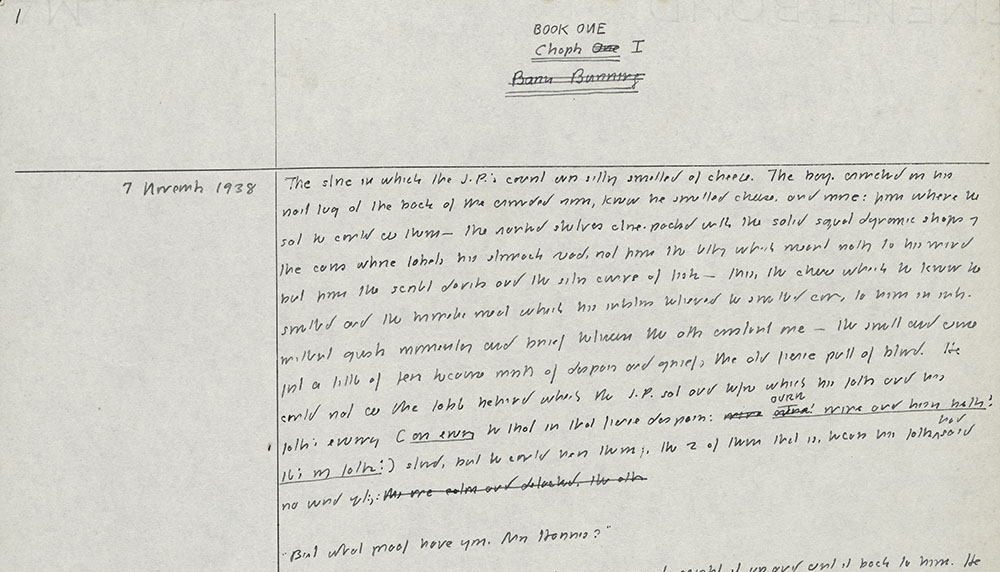 1
BOOK ONE
Chapter One I
Barn Burning
7 November 1938
The store in which the J.P.'s court was sitting smelled of cheese. The boy, crouched on his
nail keg at the back of the crowded room, knew he smelled cheese, and more: from where he
sat he could see them — the ranked shelves close-packed with the solid squat dynamic shapes of
tin cans whose labels his stomach read, not from the lettering which meant nothing to his mind
but from the scarlet devils and the silver curve of fish — this, the cheese which he knew he
smelled and the hermetic meat which his intestines believed he smelled coming to him in inter-
mittent gusts momentary and brief between the other constant one — the smell and sense
just a little of fear because mostly of despair and grief, the old fierce pull of blood. He
could not see the table behind which the J.P. sat and before which his father and his
father's enemy (our enemy he thought in that fierce despair: mine ourn! mine and hisn both!
It's my father!) stood, but he could hear them, the 2 of them that is, because his father had said
no word yet: the one calm and detached, the other
"But what proof have you, Mr Harris?"
caught it up and sent it back to him. He